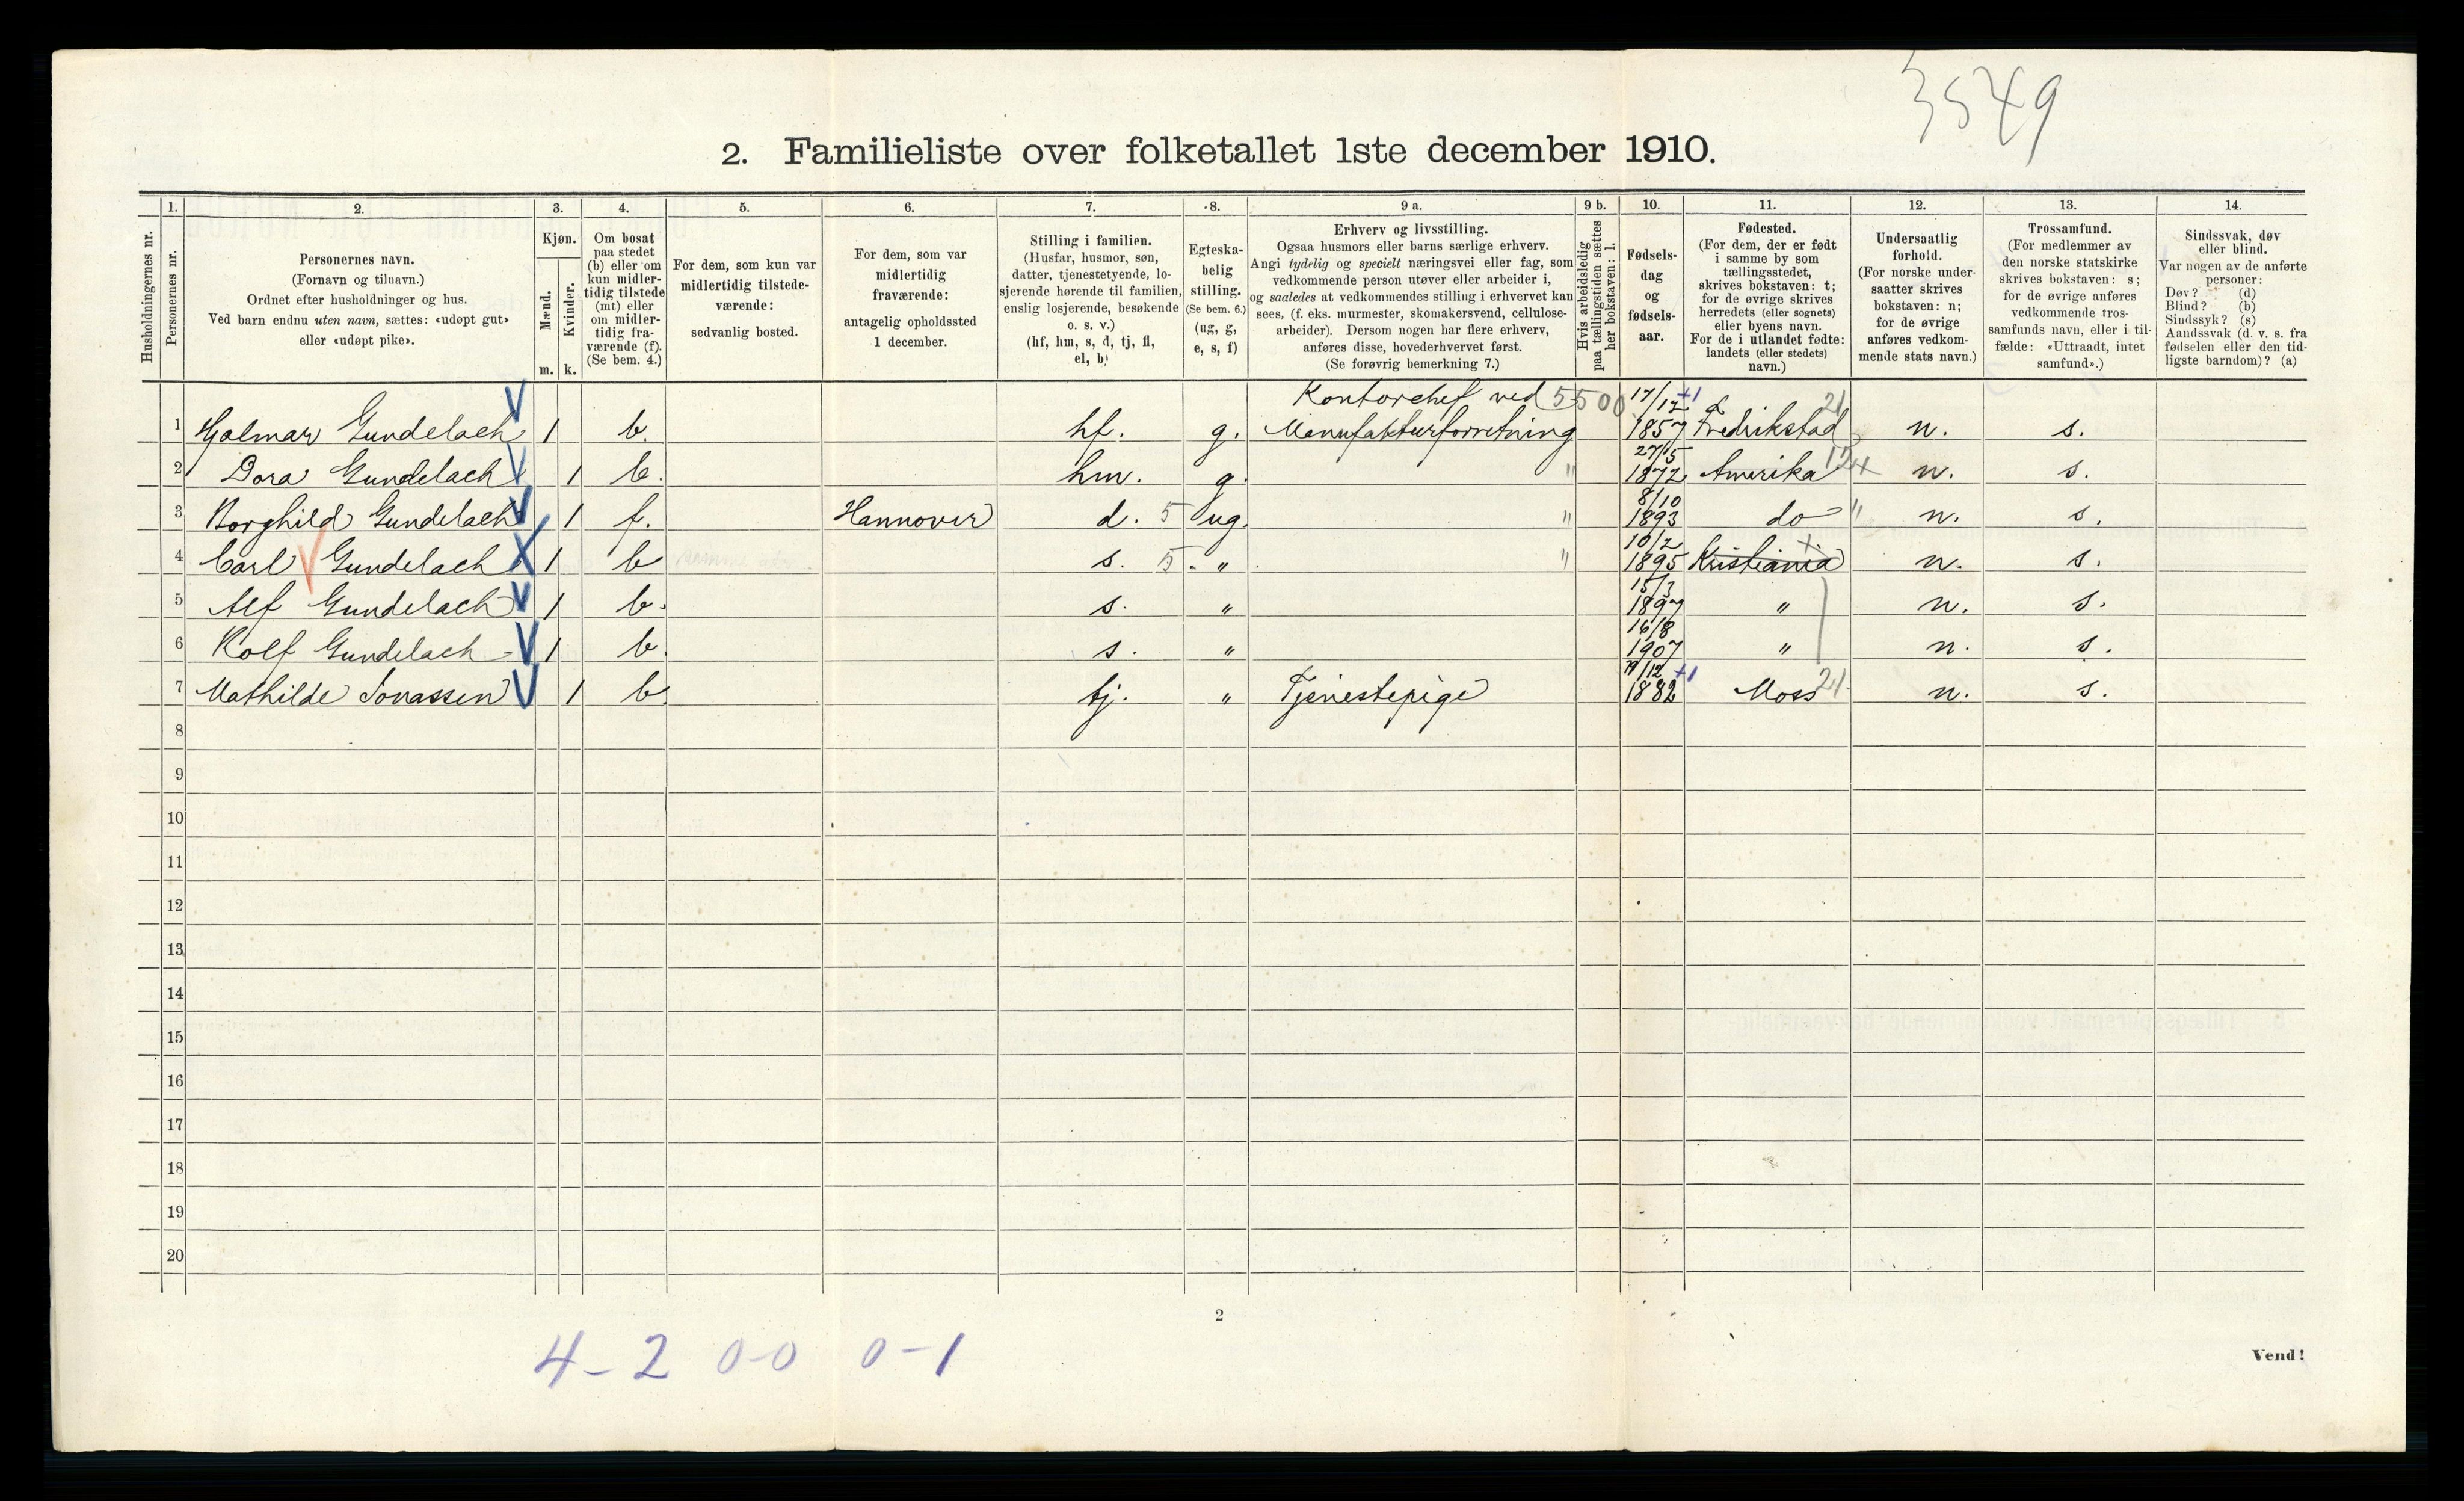 3549
2. Familieliste over folketallet 1ste december 1910.
Husholdningernes nr.
1.
Personernes nr.
2.
Personernes navn.
(Fornavn og tilnavn.)
Ordnet efter husholdninger og hus.
Ved barn endnu uten navn, sættes: «udøpt gut»
eller «udøpt pike».
3.
Kjøn.
Mænd.
Kvinder.
m. k.
4.
Om bosat
paa stedet
(b) eller om
kun midler-
tidig tilstede
(mt) eller
om midler-
tidig fra-
værende (f).
(Se bem. 4.)
5.
For dem, som kun var
midlertidig tilstede-
værende:
sedvanlig bosted.
6.
For dem, som var
midlertidig
fraværende:
antagelig opholdssted
1 december.
7.
Stilling i familien.
(Husfar, husmor, søn,
datter, tjenestetyende, lo-
sjerende hørende til familien,
enslig losjerende, besøkende
o. s. v.)
(hf, hm, s, d, tj, fl,
el, b)
8.
Egteska-
belig
stilling.
(Se bem. 6.)
(ug, g,
e, s, f)
9 a.
Erhverv og livsstilling.
Ogsaa husmors eller barns særlige erhverv.
Angi tydelig og specielt næringsvei eller fag, som
vedkommende person utøver eller arbeider i,
og saaledes at vedkommendes stilling i erhvervet kan
sees, (f. eks. murmester, skomakersvend, cellulose-
arbeider). Dersom nogen har flere erhverv,
anføres disse, hovederhvervet først.
(Se forøvrig bemerkning 7.)
9 b.
Hvis arbeidsledig
paa tællingstiden sættes
her bokstaven: l.
10.
Fødsels-
dag
og
fødsels-
aar.
11.
Fødested.
(For dem, der er født
i samme by som
tællingsstedet,
skrives bokstaven: t;
for de øvrige skrives
herredets (eller sognets)
eller byens navn.
For de i utlandet fødte:
landets (eller stedets)
navn.)
12.
Undersaatlig
forhold.
(For norske under-
saatter skrives
bokstaven: n;
for de øvrige
anføres vedkom-
mende stats navn.)
13.
Trossamfund.
(For medlemmer av
den norske statskirke
skrives bokstaven: s;
for de øvrige anføres
vedkommende tros-
samfunds navn, eller i til-
fælde: «Uttraadt, intet
samfund».)
14.
Sindssvak, døv
eller blind.
Var nogen av de anførte
personer:
Døv? (d)
Blind? (b)
Sindssyk? (s)
Aandssvak (d. v. s. fra
fødselen eller den tid-
ligste barndom)? (a)
Kontorchef ved 5500 17/12 +1 21
1 Hjalmar Gundelach 1 b. hf. g. Manufakturforretning 1857 Fredrikstad n. s.
27/5
2 Dora Gundelach 1 b. hm. g. " 1872 Amerika 124 n. s.
8/10
3 Borghild Gundelach 1 f. Hannover d. 5 ug. " 1893 do " n. s.
10/2
4 Carl Gundelach 1 b s. 5. " " 1895 Kristiania n. s.
15/3
5 Alf Gundelach 1 b. s. " 1897 " n. s.
16/8
6 Rolf Gundelach 1 b. s. " 1907 " n. s.
/12 +1
7 Mathilde Jonassen 1 b. tj. " Tjenestepige 1882 Moss 21 n. s.
8
9
10
11
12
13
14
15
16
17
18
19
20
2
4-2 0-0 0-1
Vend!